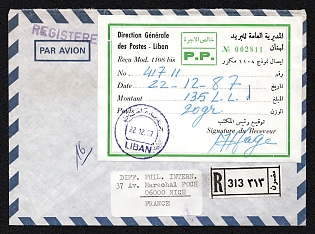 REGISTERE
PAR AVION
Direction Générale
des Postes - Liban
خالص الاجرة
P.P.
المديرية العامة للبريد
لبنان
№ 002811
Reçu Mod. 1108 bis
ايصال نموذج ١١٠٨ مكرر
No. 41711 رقم
Date 22-12-87 تاريخ
Montant 135 L.L. المبلغ
Poids 20gr. الوزن
توقيع رئيس المكتب
Signature du Receveur
22.12.87
LIBAN
16
DIFF. PHIL. INTERN.
37 Av. Marechal FOCH
06000 NICH
FRANCE
R 313 ٣١٣ مضمون